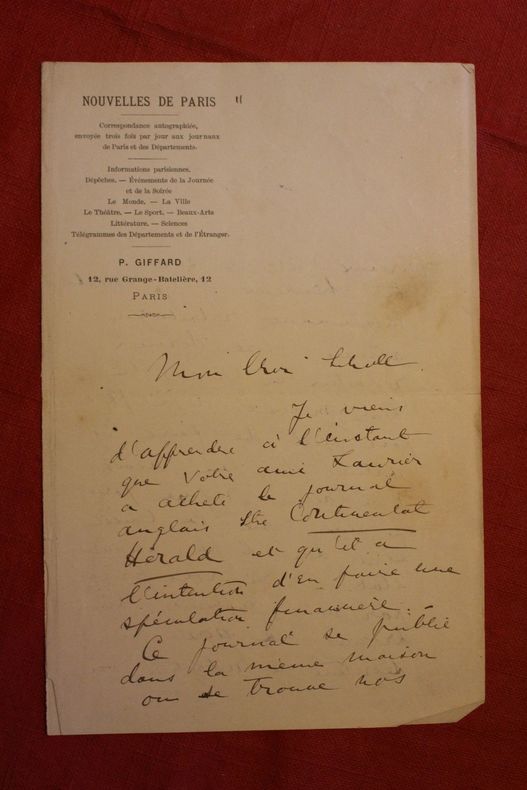 NOUVELLES DE PARIS
Correspondance autographiée,
envoyée trois fois par jour aux journaux
de Paris et des Départements.
Informations parisiennes.
Dépêches. — Événements de la Journée
et de la Soirée
Le Monde. — La Ville
Le Théâtre. — Le Sport. — Beaux-Arts
Littérature. — Sciences
Télégrammes des Départements et de l'Étranger.
P. GIFFARD
12, rue Grange-Batelière, 12
PARIS
Mon Cher Scholl
Je viens
d'apprendre à l'instant
que votre ami Laurier
a acheté le journal
anglais the Continental
Herald et qu'il a
l'intention d'en faire une
spéculation financière.
Ce journal se publie
dans la même maison
ou se trouve nos